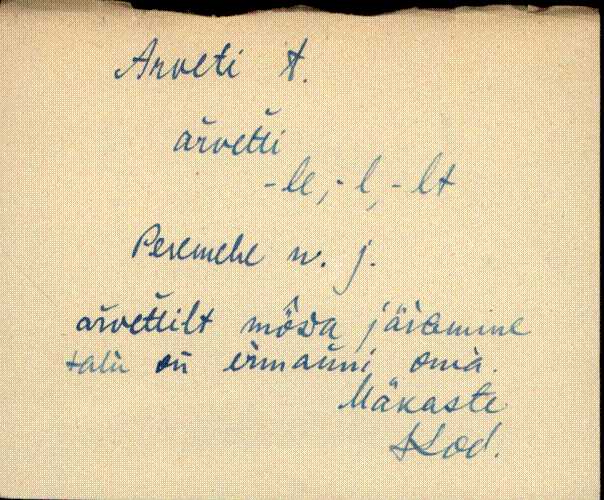 Arveti t.
ărvetti
-le, -l, -lt
Peremehe n. j.
ărvettilt mõsa järämine
talu on ermanni oma.
Mäkaste
Kod.